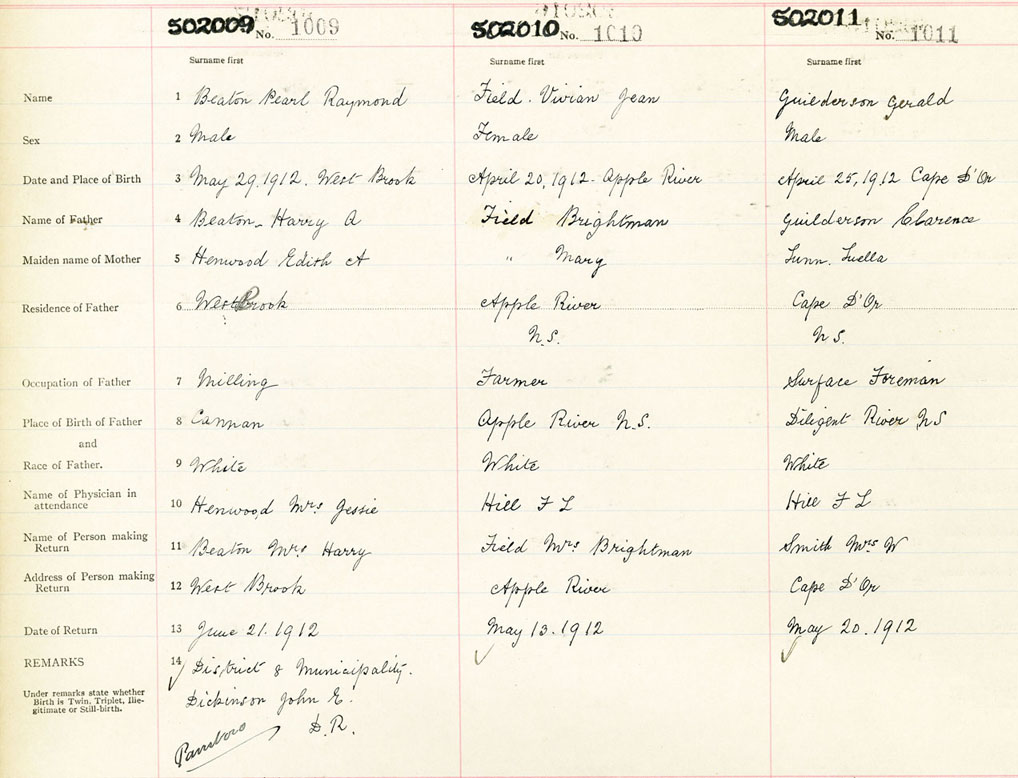 502009 No. 1009 502010 No. 1010 502011 No. 1011
Surname first Surname first Surname first
Name 1 Beaton Pearl Raymond Field. Vivian Jean Guilderson Gerald
Sex 2 Male Female Male
Date and Place of Birth 3 May 29.1912. West Brook April 20, 1912. Apple River April 25, 1912 Cape D'Or
Name of Father 4 Beaton - Harry A Field Brightman Guilderson Clarence
Maiden name of Mother 5 Henwood Edith A " Mary Luella
Residence of Father 6 West Brook Apple River Cape D'Or
N.S. N S.
Occupation of Father 7 Milling Farmer Surface Foreman
Place of Birth of Father 8 Cannan Apple River N.S. Diligent River NS
and
Race of Father. 9 White White White
Name of Physician in
attendance 10 Henwood Mrs Jessie Hill F L Hill F L
Name of Person making
Return 11 Beaton Mrs Harry Field Mrs Brightman Smith Mrs W
Address of Person making
Return 12 West Brook Apple River Cape D'Or
Date of Return 13 June 21.1912 May 13.1912 May 20.1912
REMARKS 14 District 8 Municipality.
Under remarks state whether
Birth is Twin, Triplet, Ille-
gitimate or Still-birth.
Dickinson John E.
Parrsboro D.R.